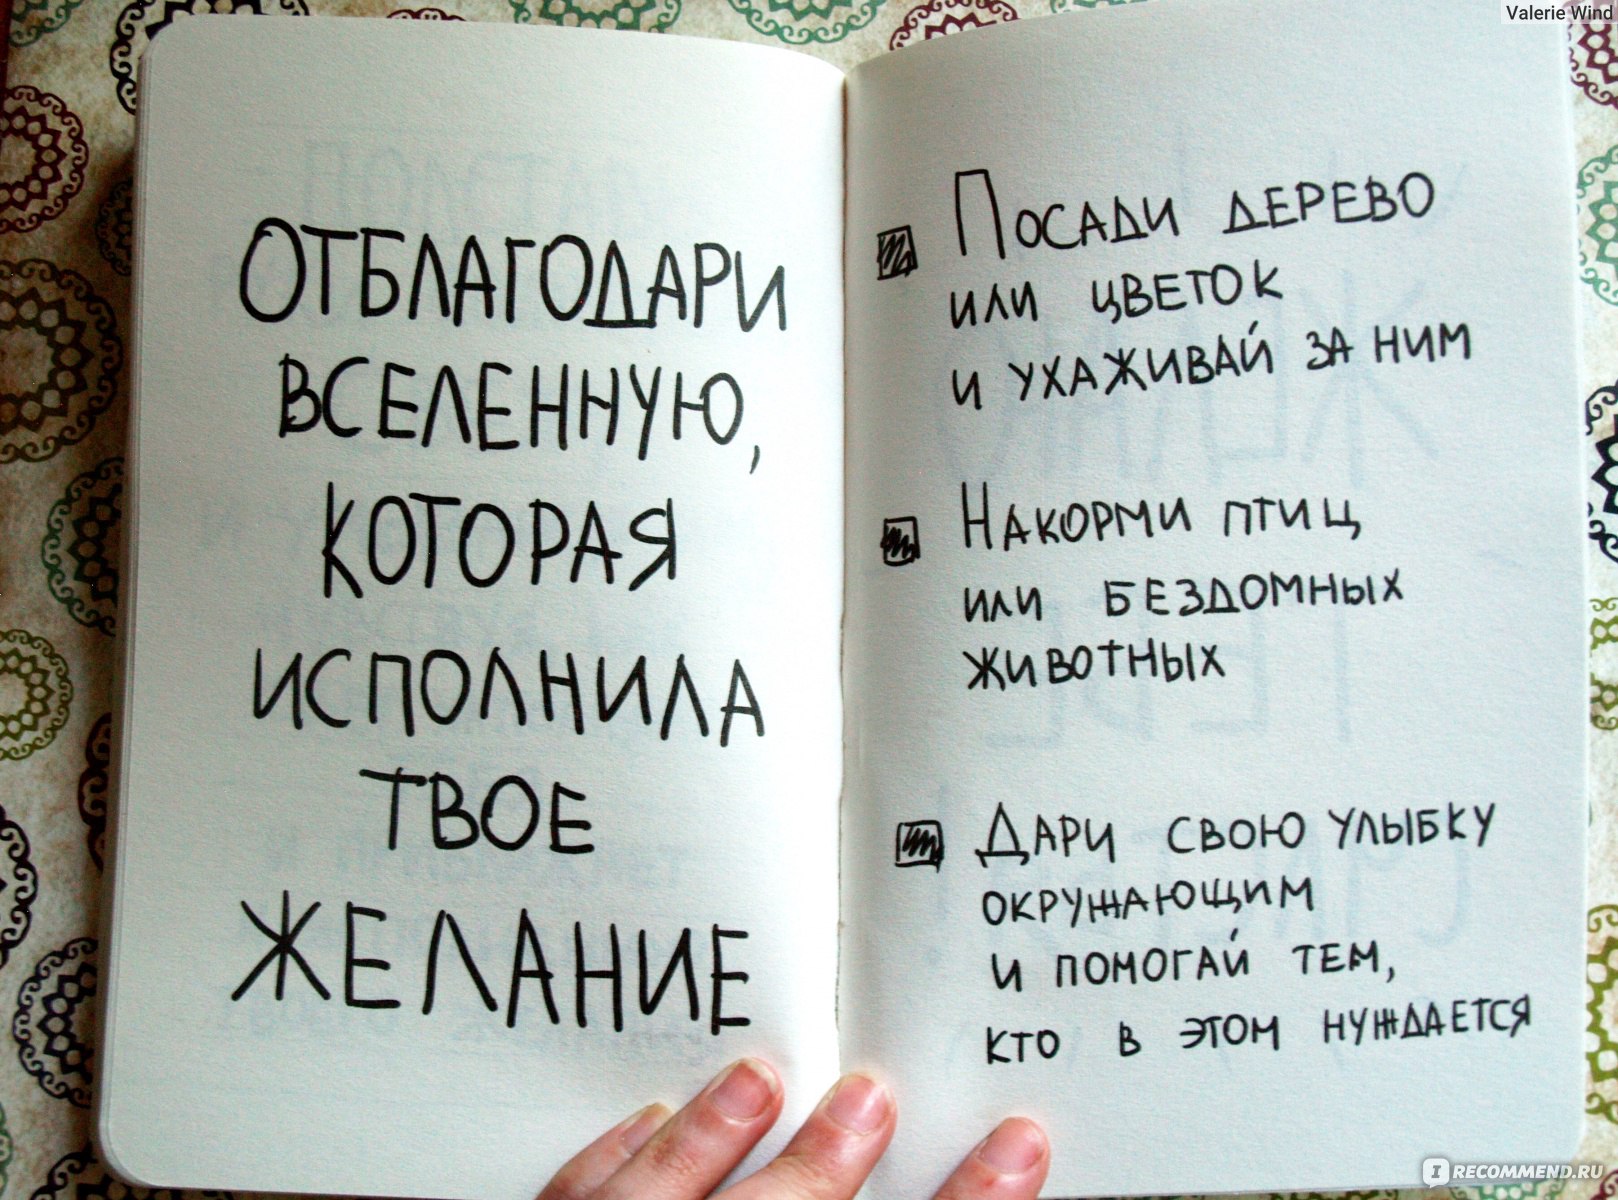 Valerie Wind
ОТБЛАГОДАРИ
ВСЕЛЕННУЮ,
КОТОРАЯ
ИСПОЛНИЛА
ТВОЕ
ЖЕЛАНИЕ
ПОСАДИ ДЕРЕВО
ИЛИ ЦВЕТОК
И УХАЖИВАЙ ЗА НИМ
НАКОРМИ ПТИЦ
ИЛИ БЕЗДОМНЫХ
ЖИВОТНЫХ
ДАРИ СВОЮ УЛЫБКУ
ОКРУЖАЮЩИМ
И ПОМОГАЙ ТЕМ,
КТО В ЭТОМ НУЖДАЕТСЯ
IRECOMMEND.RU